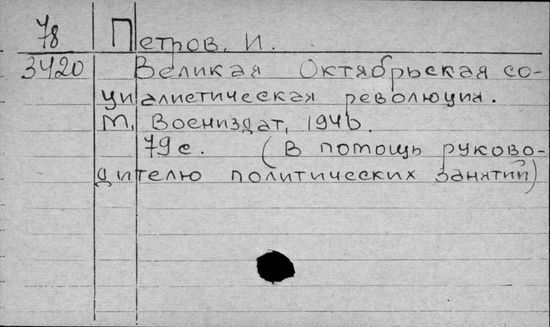 78 Петров. И.
3420 Великая Октябрьская со-
циалистическая революция.
М, Воениздат, 1946.
79 с. (В помощь руково-
дителю политических занятий)